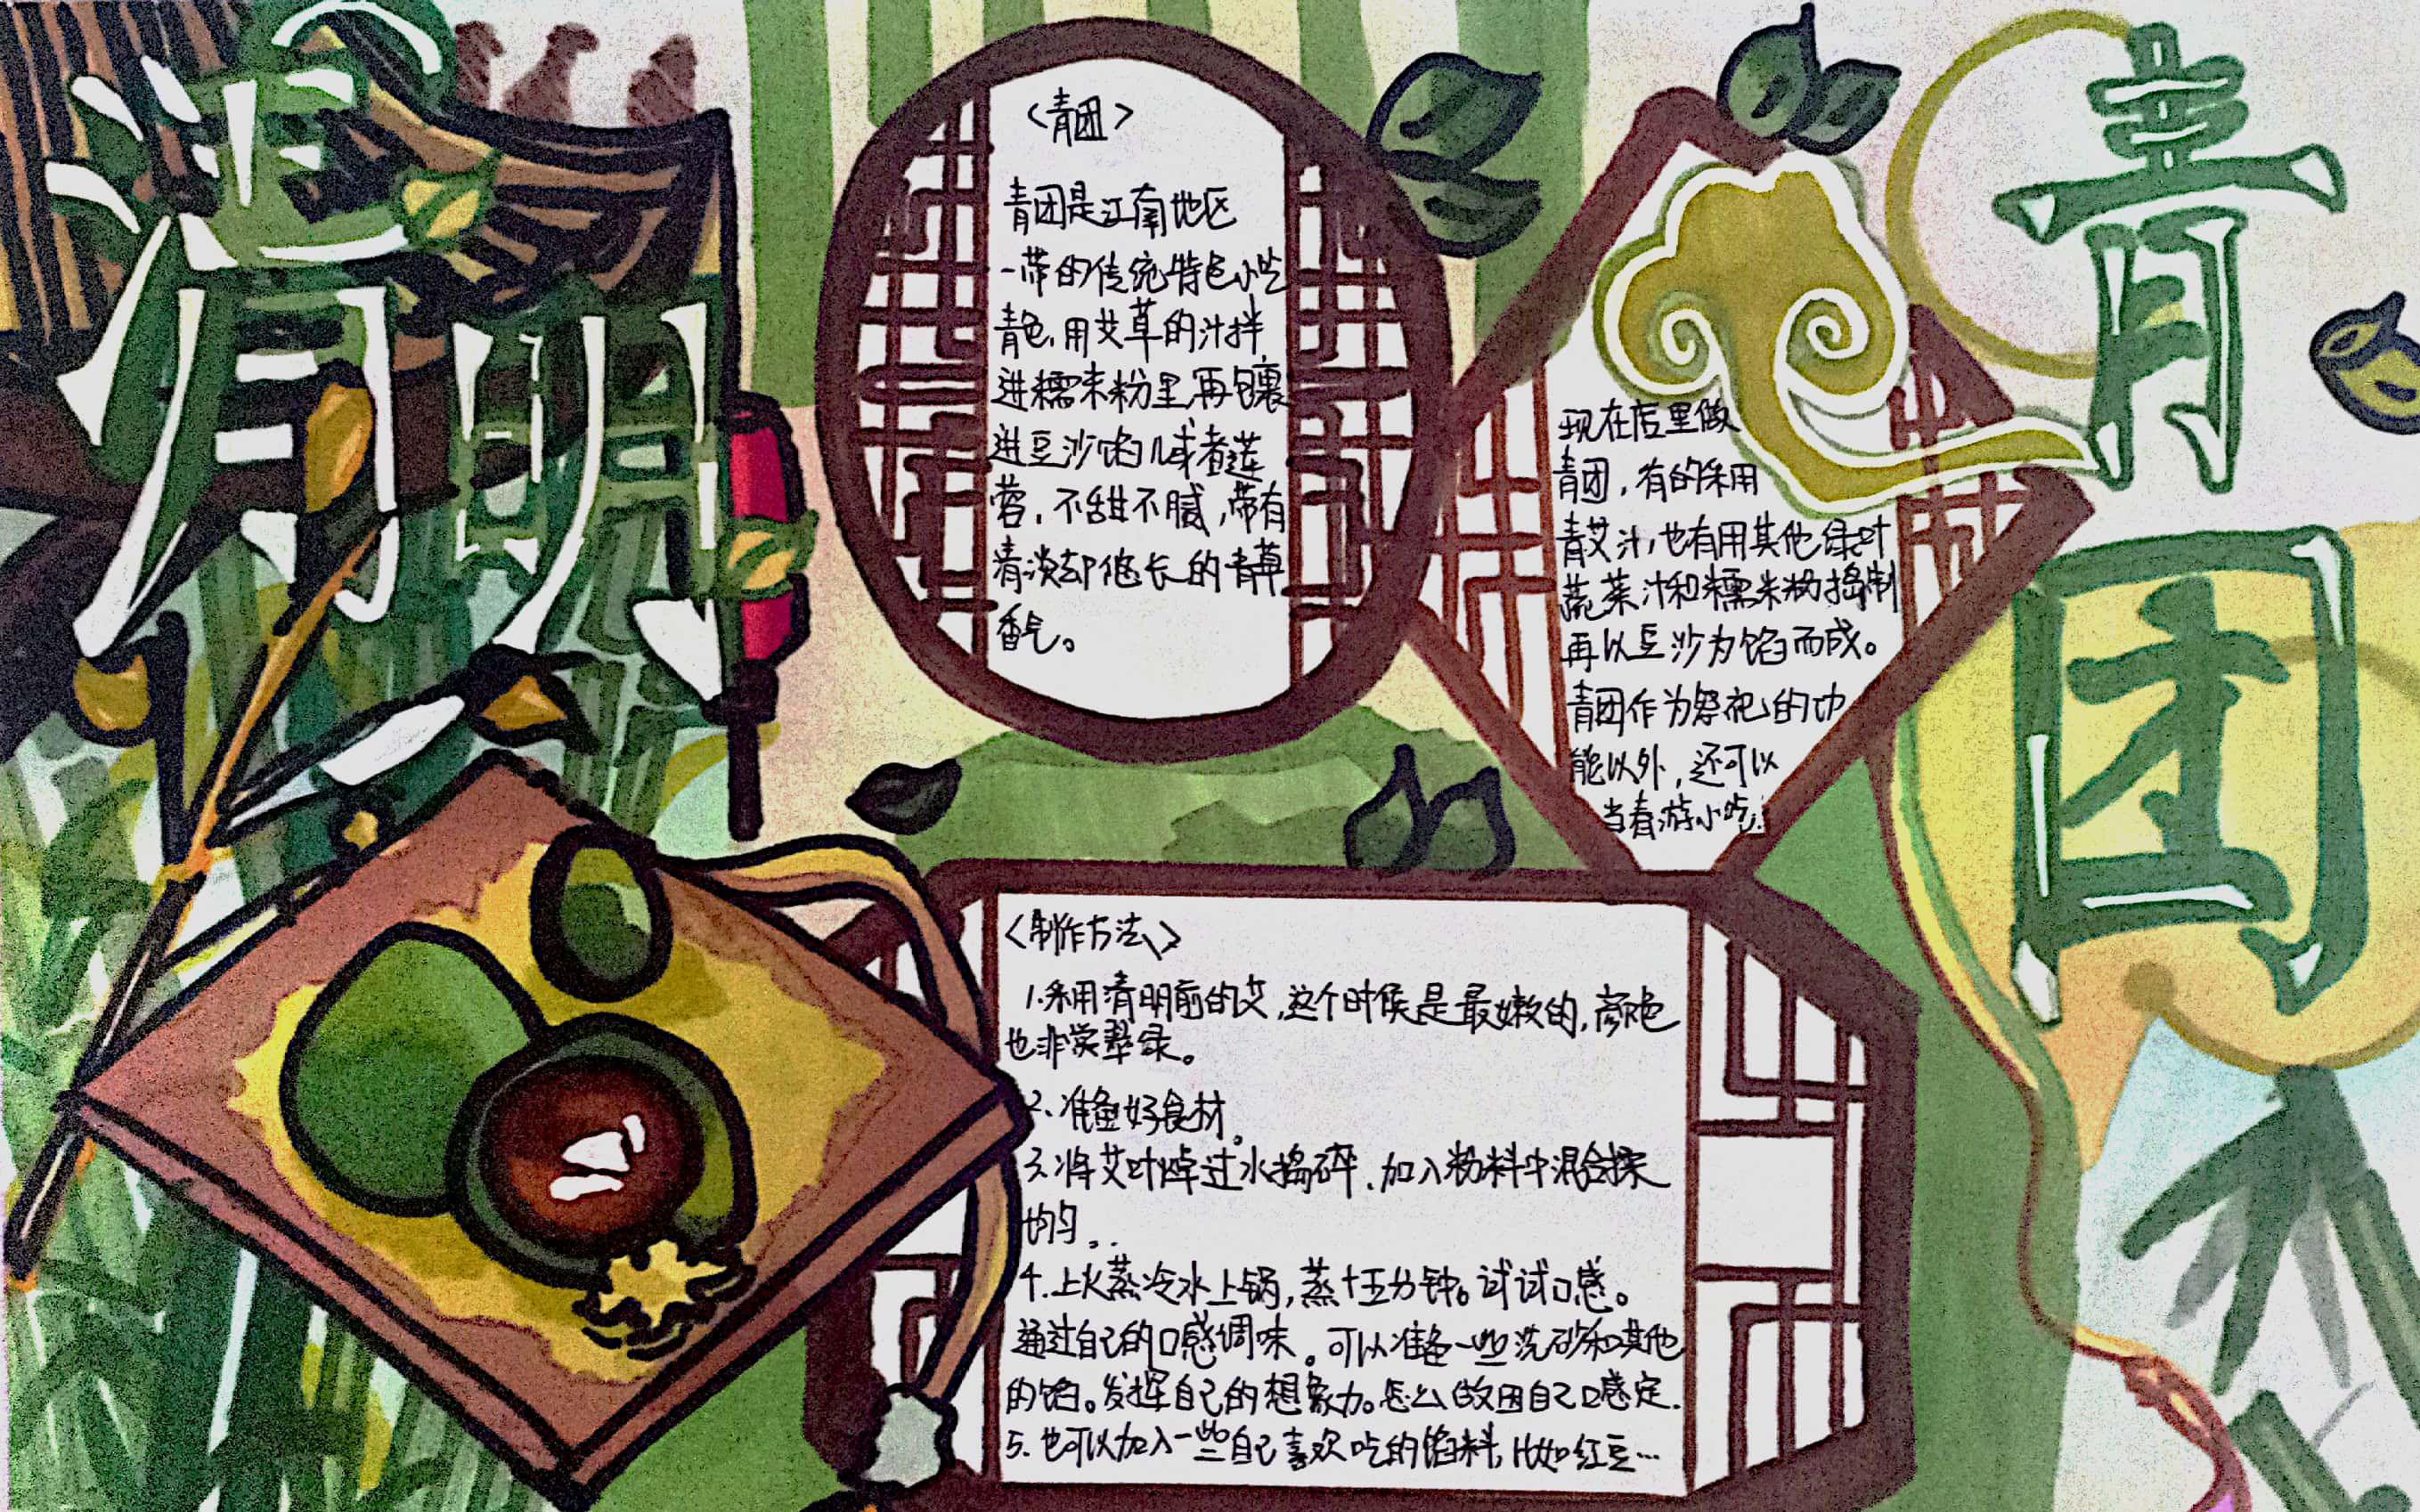 清明
〈青团〉
青团是江南地区
一带的传统特色小吃
青色,用艾草的汁拌
进糯米粉里,再包裹
进豆沙馅儿或者莲
蓉,不甜不腻,带有
清淡却悠长的青草
香气。
现在店里做
青团,有的采用
青艾汁,也有用其他绿叶
蔬菜汁和糯米粉捣制
再以豆沙为馅而成。
青团作为祭祀的功
能以外,还可以
当春游小吃.
青团
〈制作方法〉
1.采用清明前的艾,这个时候是最嫩的,颜色
也非常翠绿。
2.准备好食材。
3.将艾叶焯过水捣碎.加入粉料中混合揉
均匀..
4.上火蒸冷水上锅,蒸十五分钟。试试口感。
通过自己的口感调味。可以准备一些洗砂和其他
的馅。发挥自己的想象力。怎么做因自己口感定.
5.也可以加入一些自己喜欢吃的馅料,比如红豆…